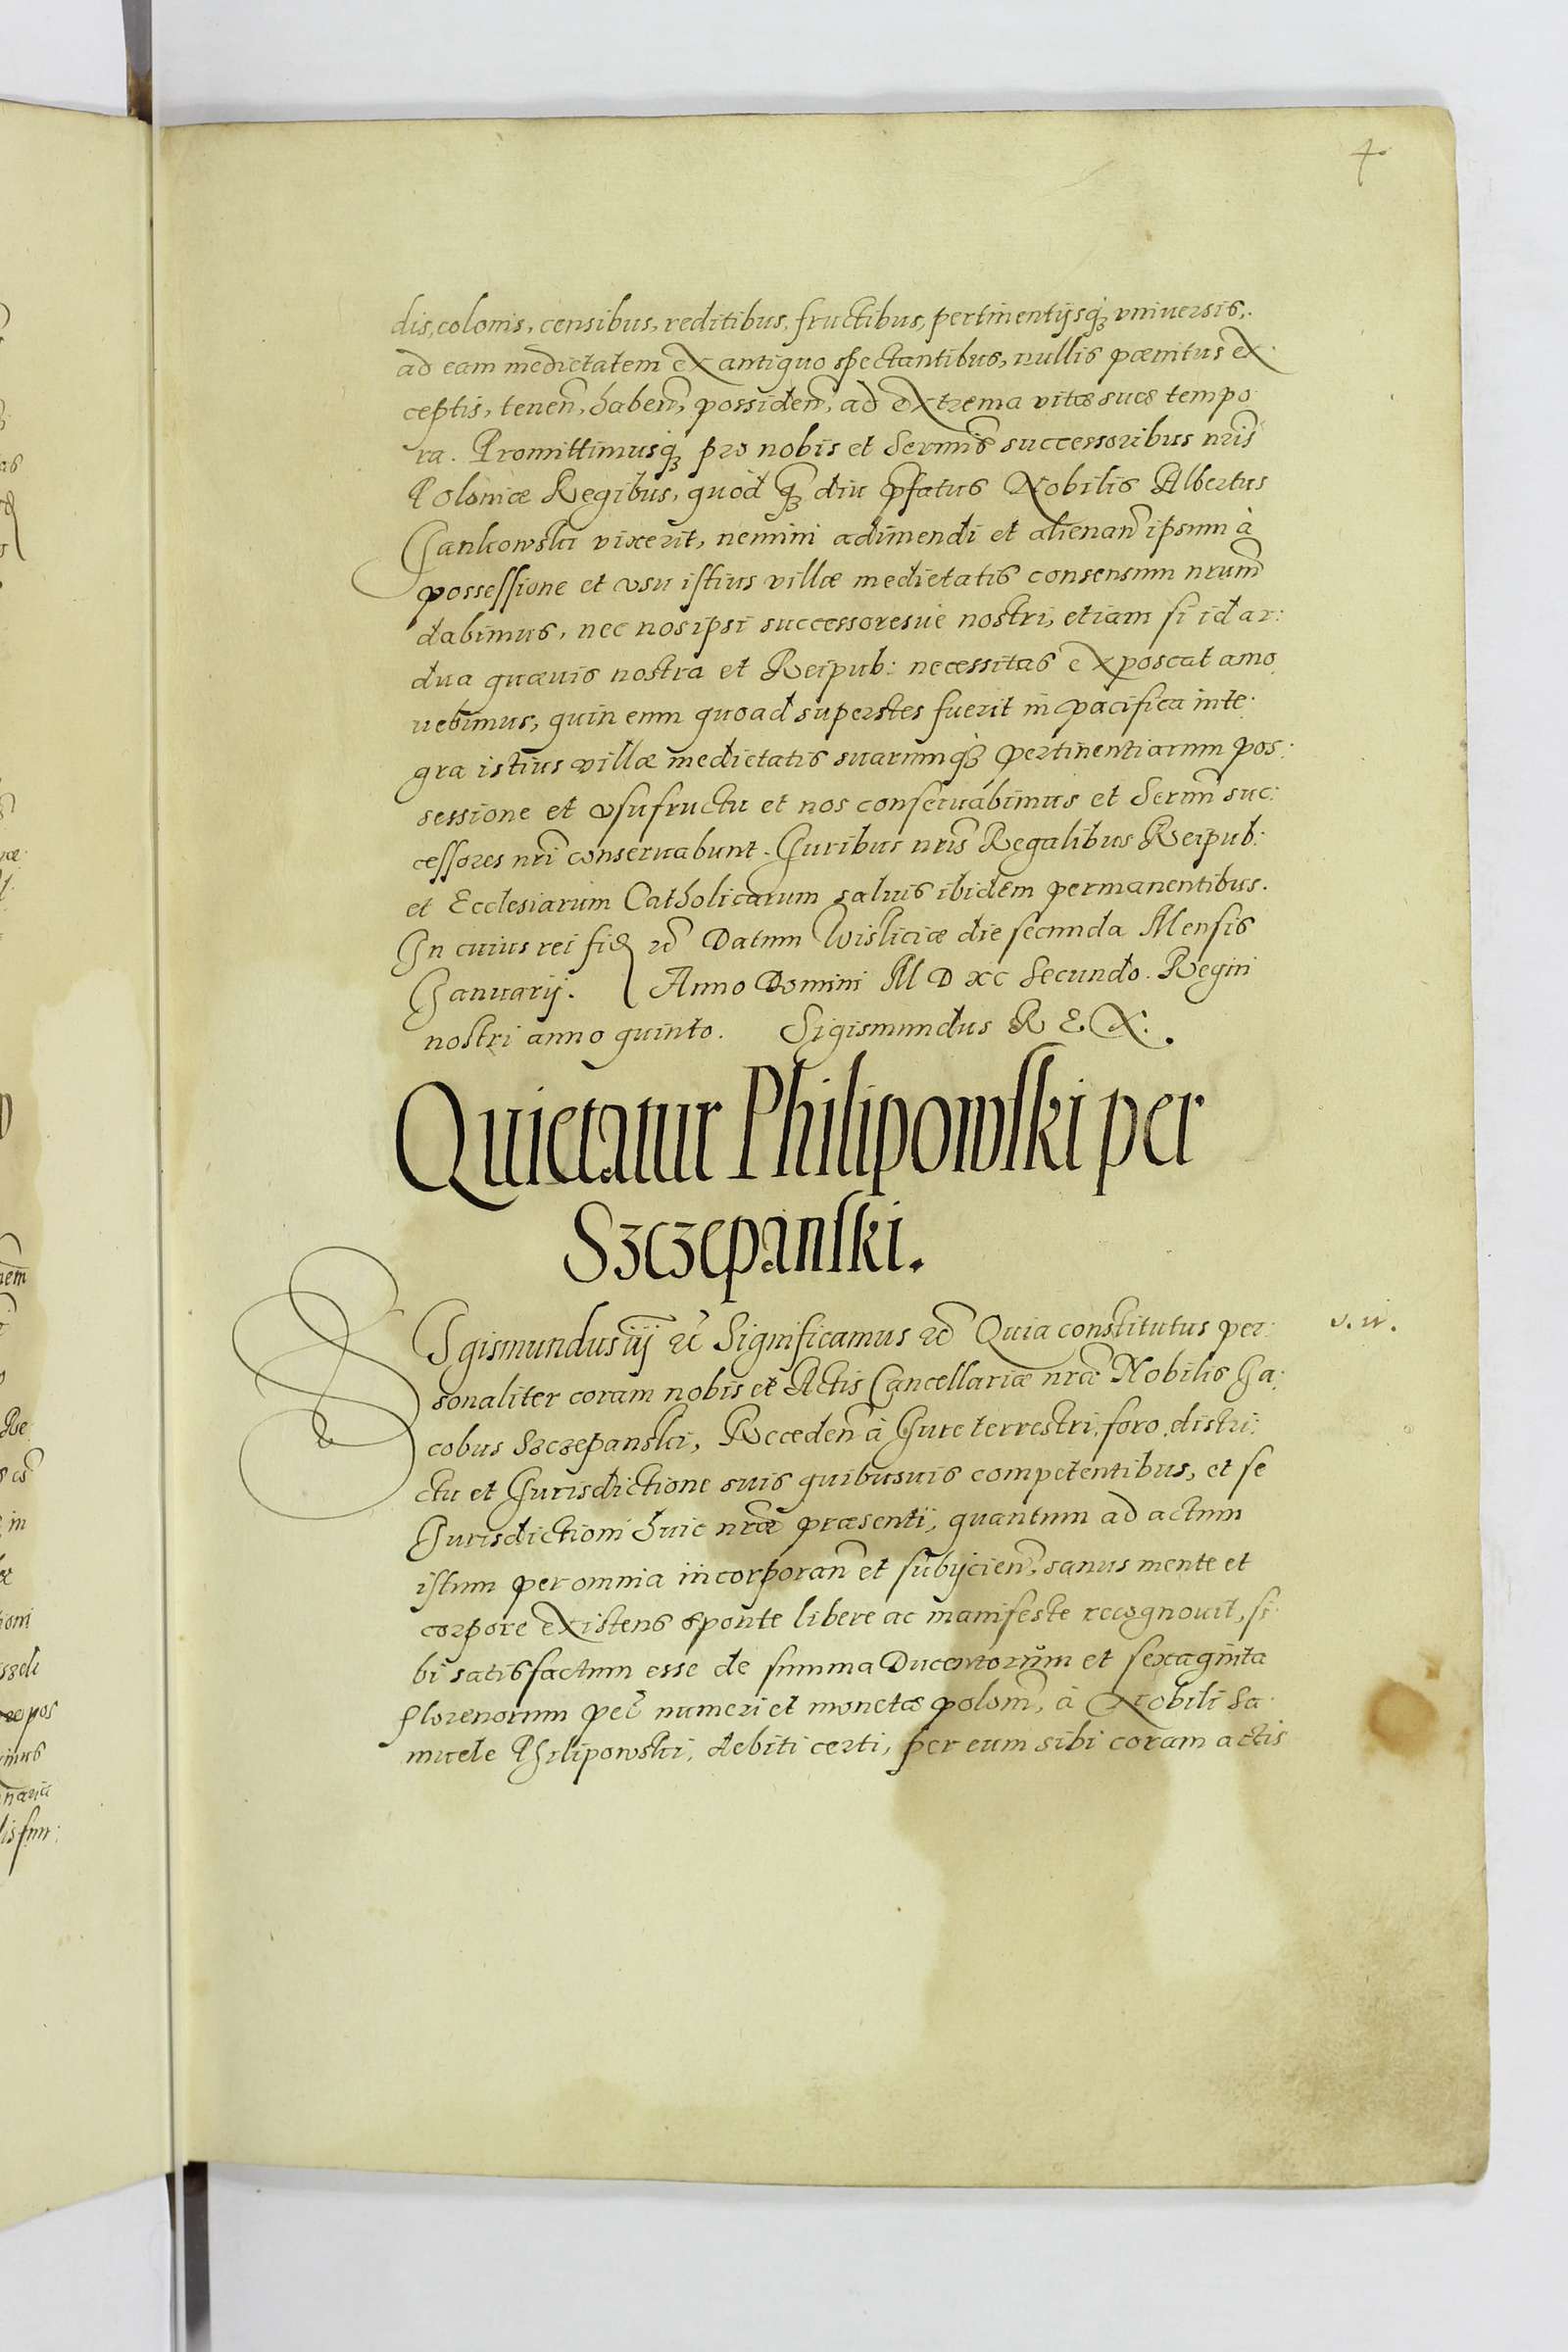 4
dis, colonis, censibus, reditibus, fructibus, pertinentijsq3 vniuersis,
ad eam medietatem ex antiquo spectantibus, nullis pœnitus ex:
ceptis, tenen̄, haben̄, possiden̄, ad extrema vitæ suæ tempo
ra. Promittimusq3 pro nobis et Serm̄is successoribus nr̄is
Poloniæ Regibus, quòd q3 diu p̄fatus Nobilis Albertus
Jankowski vixerit, nemini adimendi et alienan̄ ipsum à
possessione et vsu istius villæ medietatis consensum nrum̄
dabimus, nec nos ipsi successoresue nostri, etiam si id ar:
dua quæuis nostra et Reipub: necessitas exposcat amo
uebimus, quin eum quoad superstes fuerit in pacifica inte:
gra istius villæ medietatis suarumq3 pertinentiarum pos:
sessione et vsufructu et nos conseruábimus et Serm̄i suc:
cessores nr̄i conseruabunt. Juribus nr̄is Regalibus Reipub:
et Ecclesiarum Catholicarum saluis ibidem permanentibus.
In cuius rei fid etc̄ Datum Wisliciæ die secunda Mensis
Januarij. Anno Domini M D xc Secundo. Regni
nostri anno quinto. Sigismundus R E X.
Quietatur Philipowski per
Szczepanski.
SIgismundus iij etc̄ Significamus etc̄ Quia constitutus per:
v. w.
sonaliter coram nobis et Actis Cancellariæ nr̄æ Nobilis Ja:
cobus Szczepanski, Receden̄ à Jure terrestri, foro, distri:
ctu et Jurisdictione suis quibusuis competentibus, et se
Jurisdictioni huic nr̄æ præsenti, quantum ad actum
istum per omnia incorporan̄ et subijcien̄, sanus mente et
corpore existens sponte libere ac manifeste recognouit, si:
bi satisfactum esse de summa Ducentorum et sexaginta
florenorum pec̄ numeri et monetæ polon̄, à Nobili Sa:
muele Philipowski, debiti certi, per eum sibi coram actis